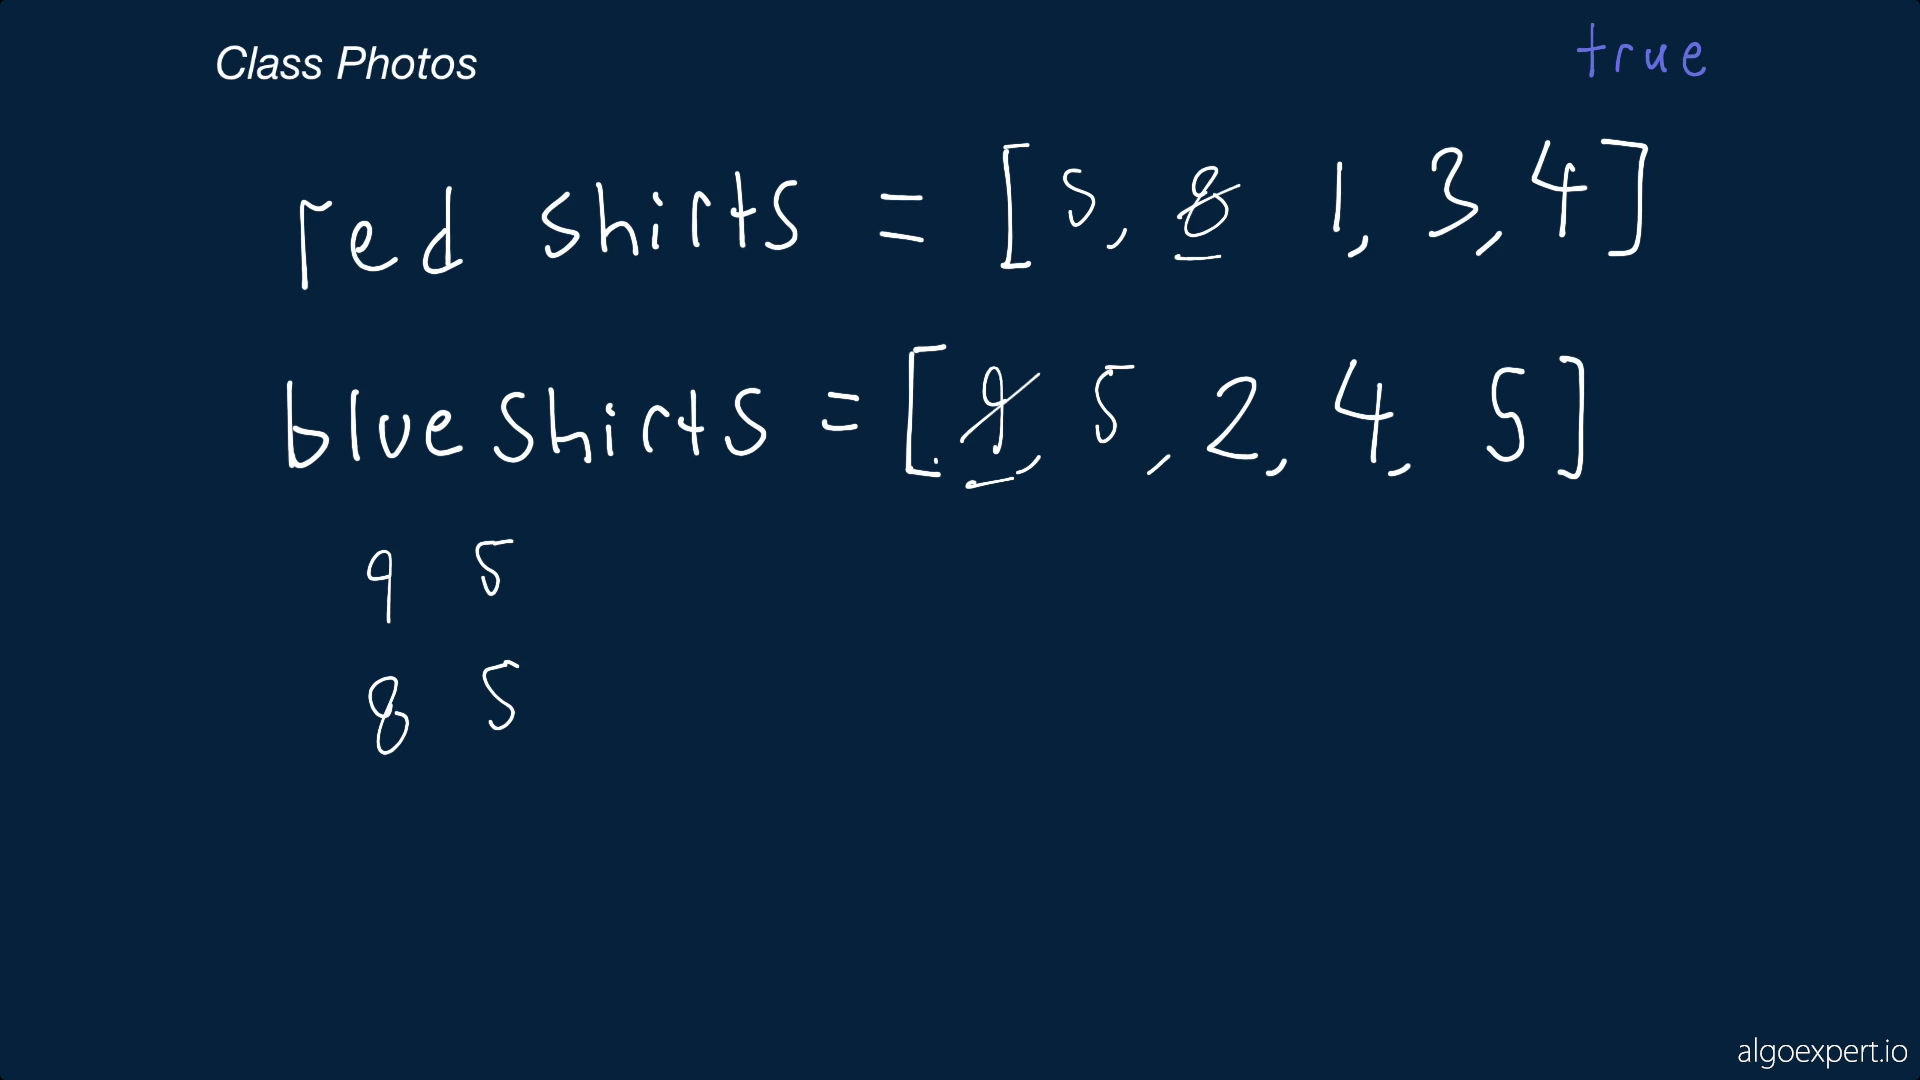 Class Photos
true
red shirts = [5, 8 1, 3, 4]
blue shirts = [9, 5, 2, 4, 5]
9 5
8 5
algoexpert.io